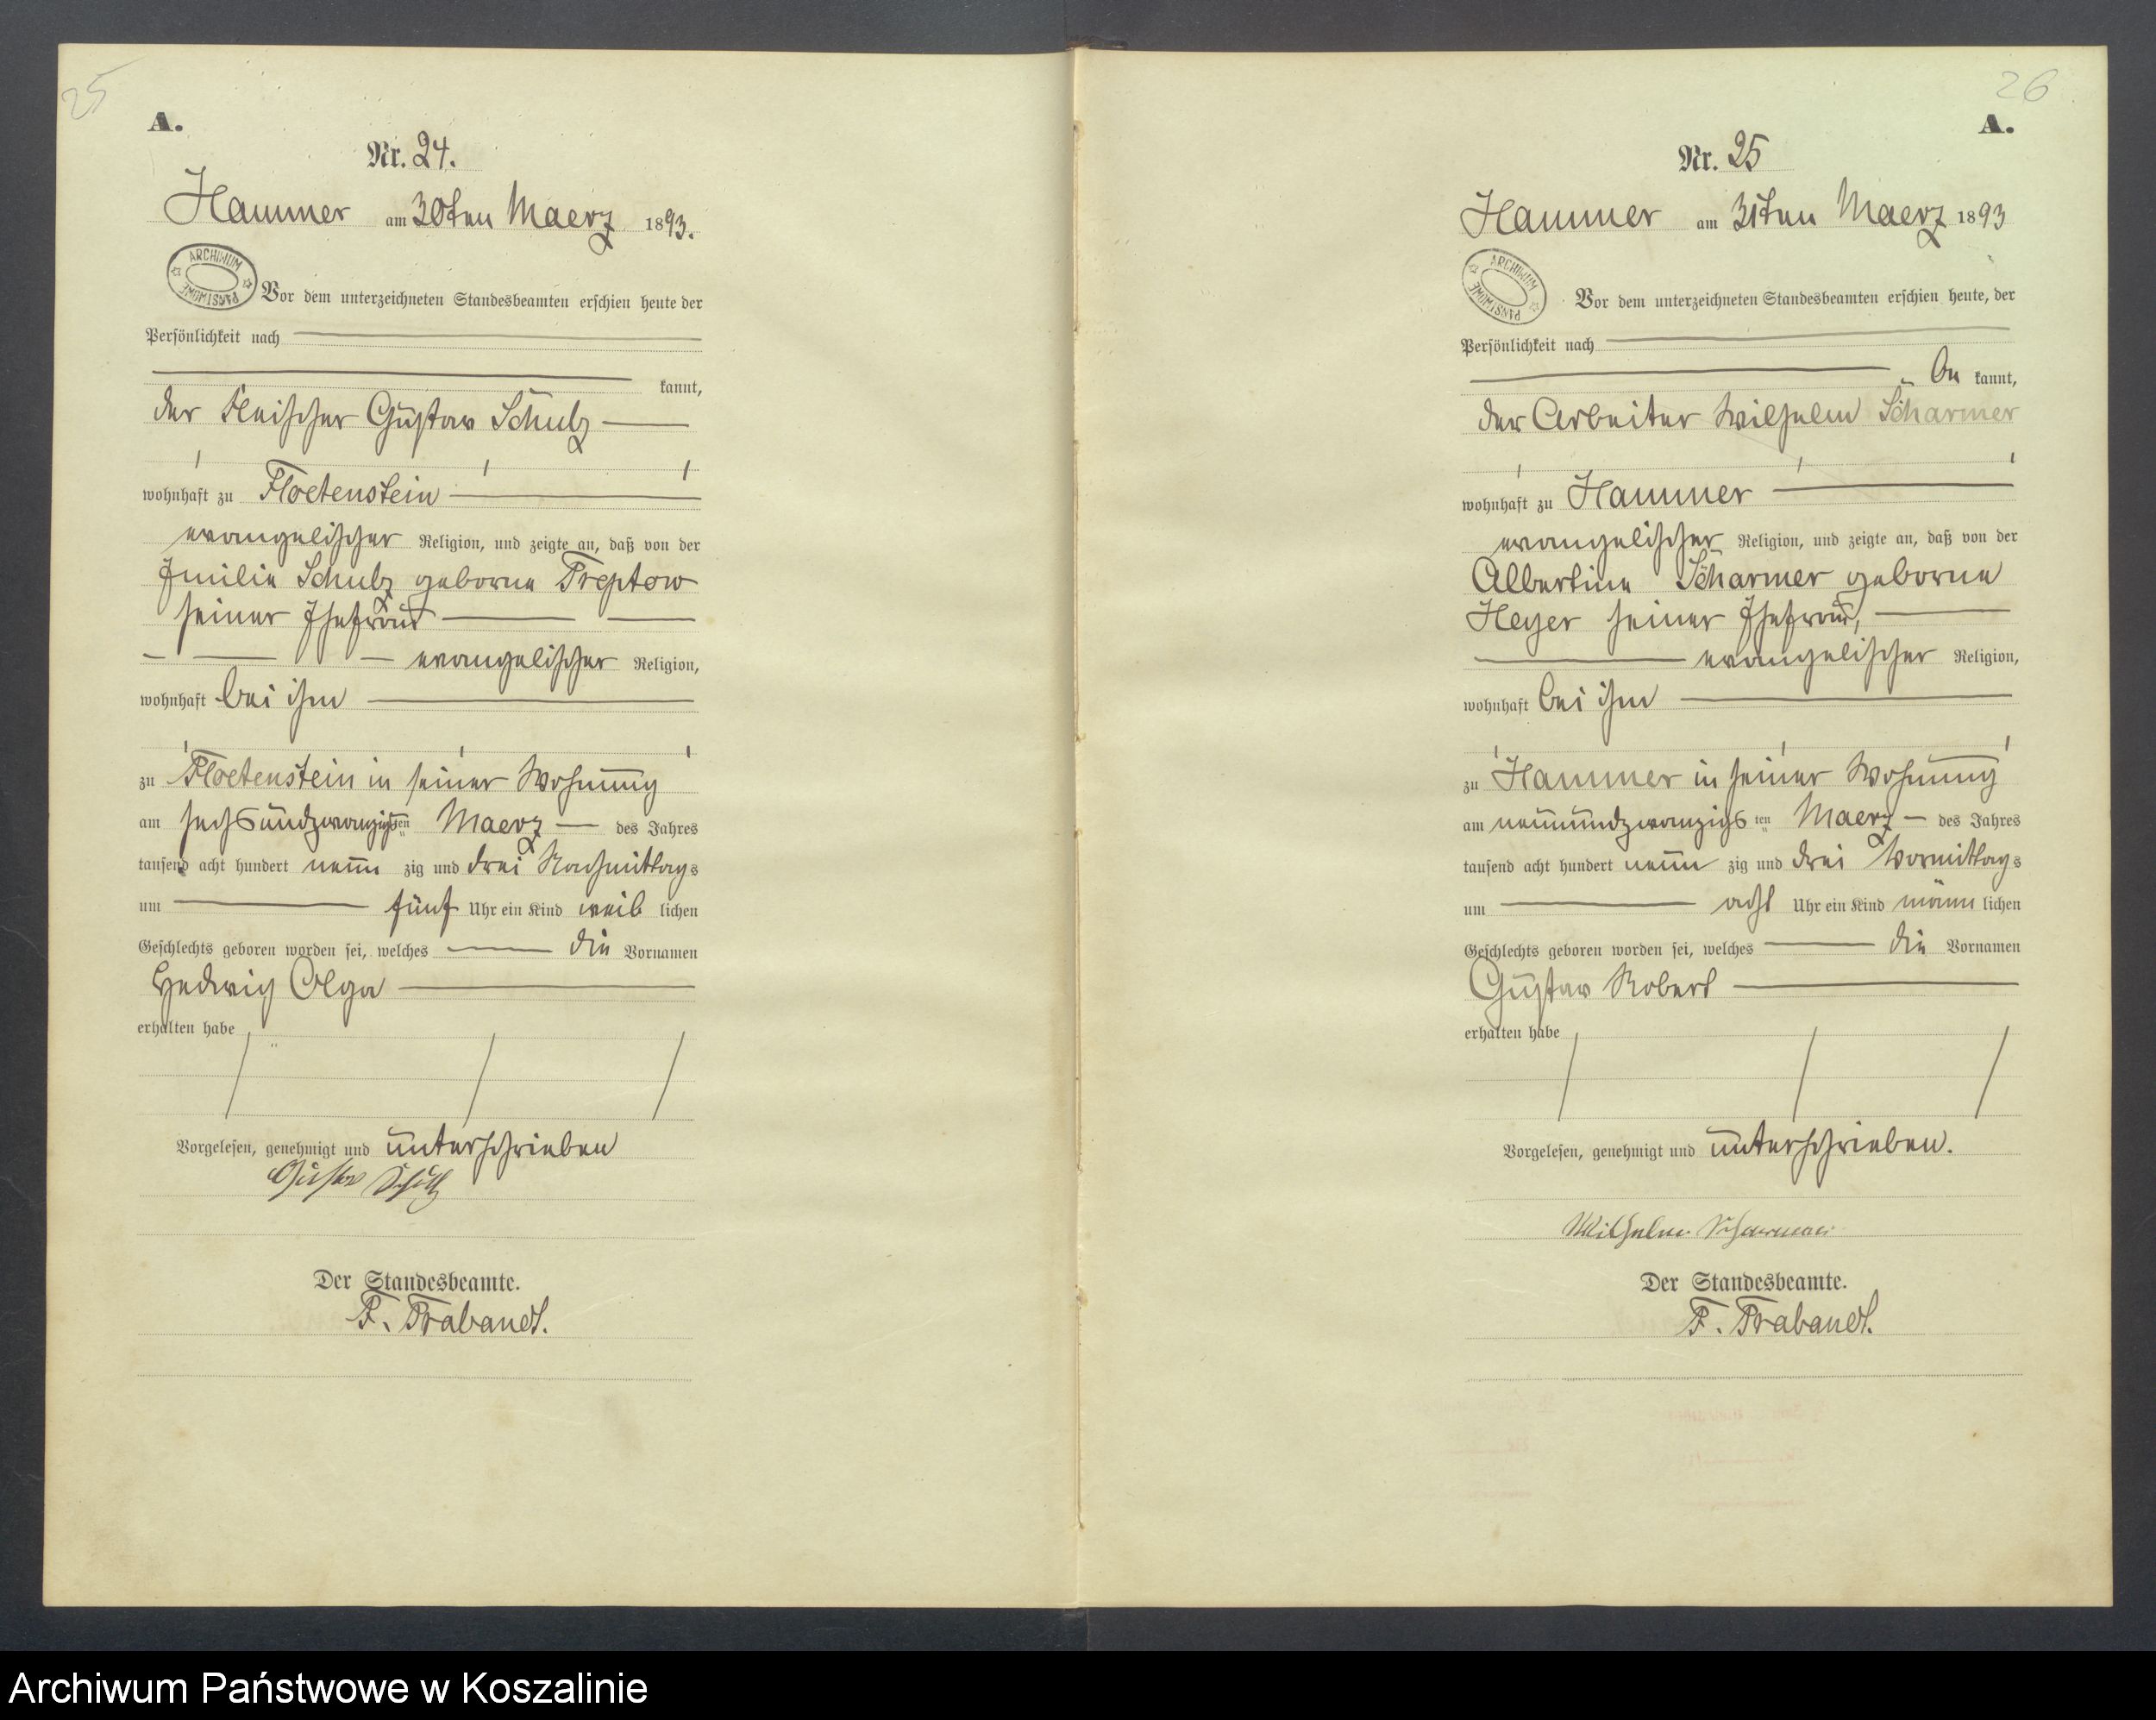 25
A.
Nr. 24.
Hammer am 30ten Maerz 1893.
ARCHIWUM PAŃSTWOWE
Vor dem unterzeichneten Standesbeamten erschien heute der
Persönlichkeit nach
kannt,
der Fleischer Gustav Schulz
wohnhaft zu Floetenstein
evangelischer Religion, und zeigte an, daß von der
Emilie Schulz geborne Treptow
seiner Ehefrau
evangelischer Religion,
wohnhaft bei ihm
zu Floetenstein in seiner Wohnung
am sechsundzwanzigsten Maerz des Jahres
tausend acht hundert neun zig und drei Nachmittags
um fünf Uhr ein Kind weib lichen
Geschlechts geboren worden sei, welches die Vornamen
Hedwig Olga
erhalten habe
Vorgelesen, genehmigt und unterschrieben
Gustav Schulz
Der Standesbeamte.
F. Trabandt.
26
A.
Nr. 25
Hammer am 31ten Maerz 1893
ARCHIWUM PAŃSTWOWE
Vor dem unterzeichneten Standesbeamten erschien heute, der
Persönlichkeit nach
be kannt,
der Arbeiter Wilhelm Scharmer
wohnhaft zu Hammer
evangelischer Religion, und zeigte an, daß von der
Albertine Scharmer geborne
Heyer seiner Ehefrau,
evangelischer Religion,
wohnhaft bei ihm
zu Hammer in seiner Wohnung
am neunundzwanzigs ten Maerz des Jahres
tausend acht hundert neun zig und drei Vormittags
um acht Uhr ein Kind männ lichen
Geschlechts geboren worden sei, welches die Vornamen
Gustav Robert
erhalten habe
Vorgelesen, genehmigt und unterschrieben.
Wilhelm Scharmer
Der Standesbeamte.
F. Trabandt.
Archiwum Państwowe w Koszalinie